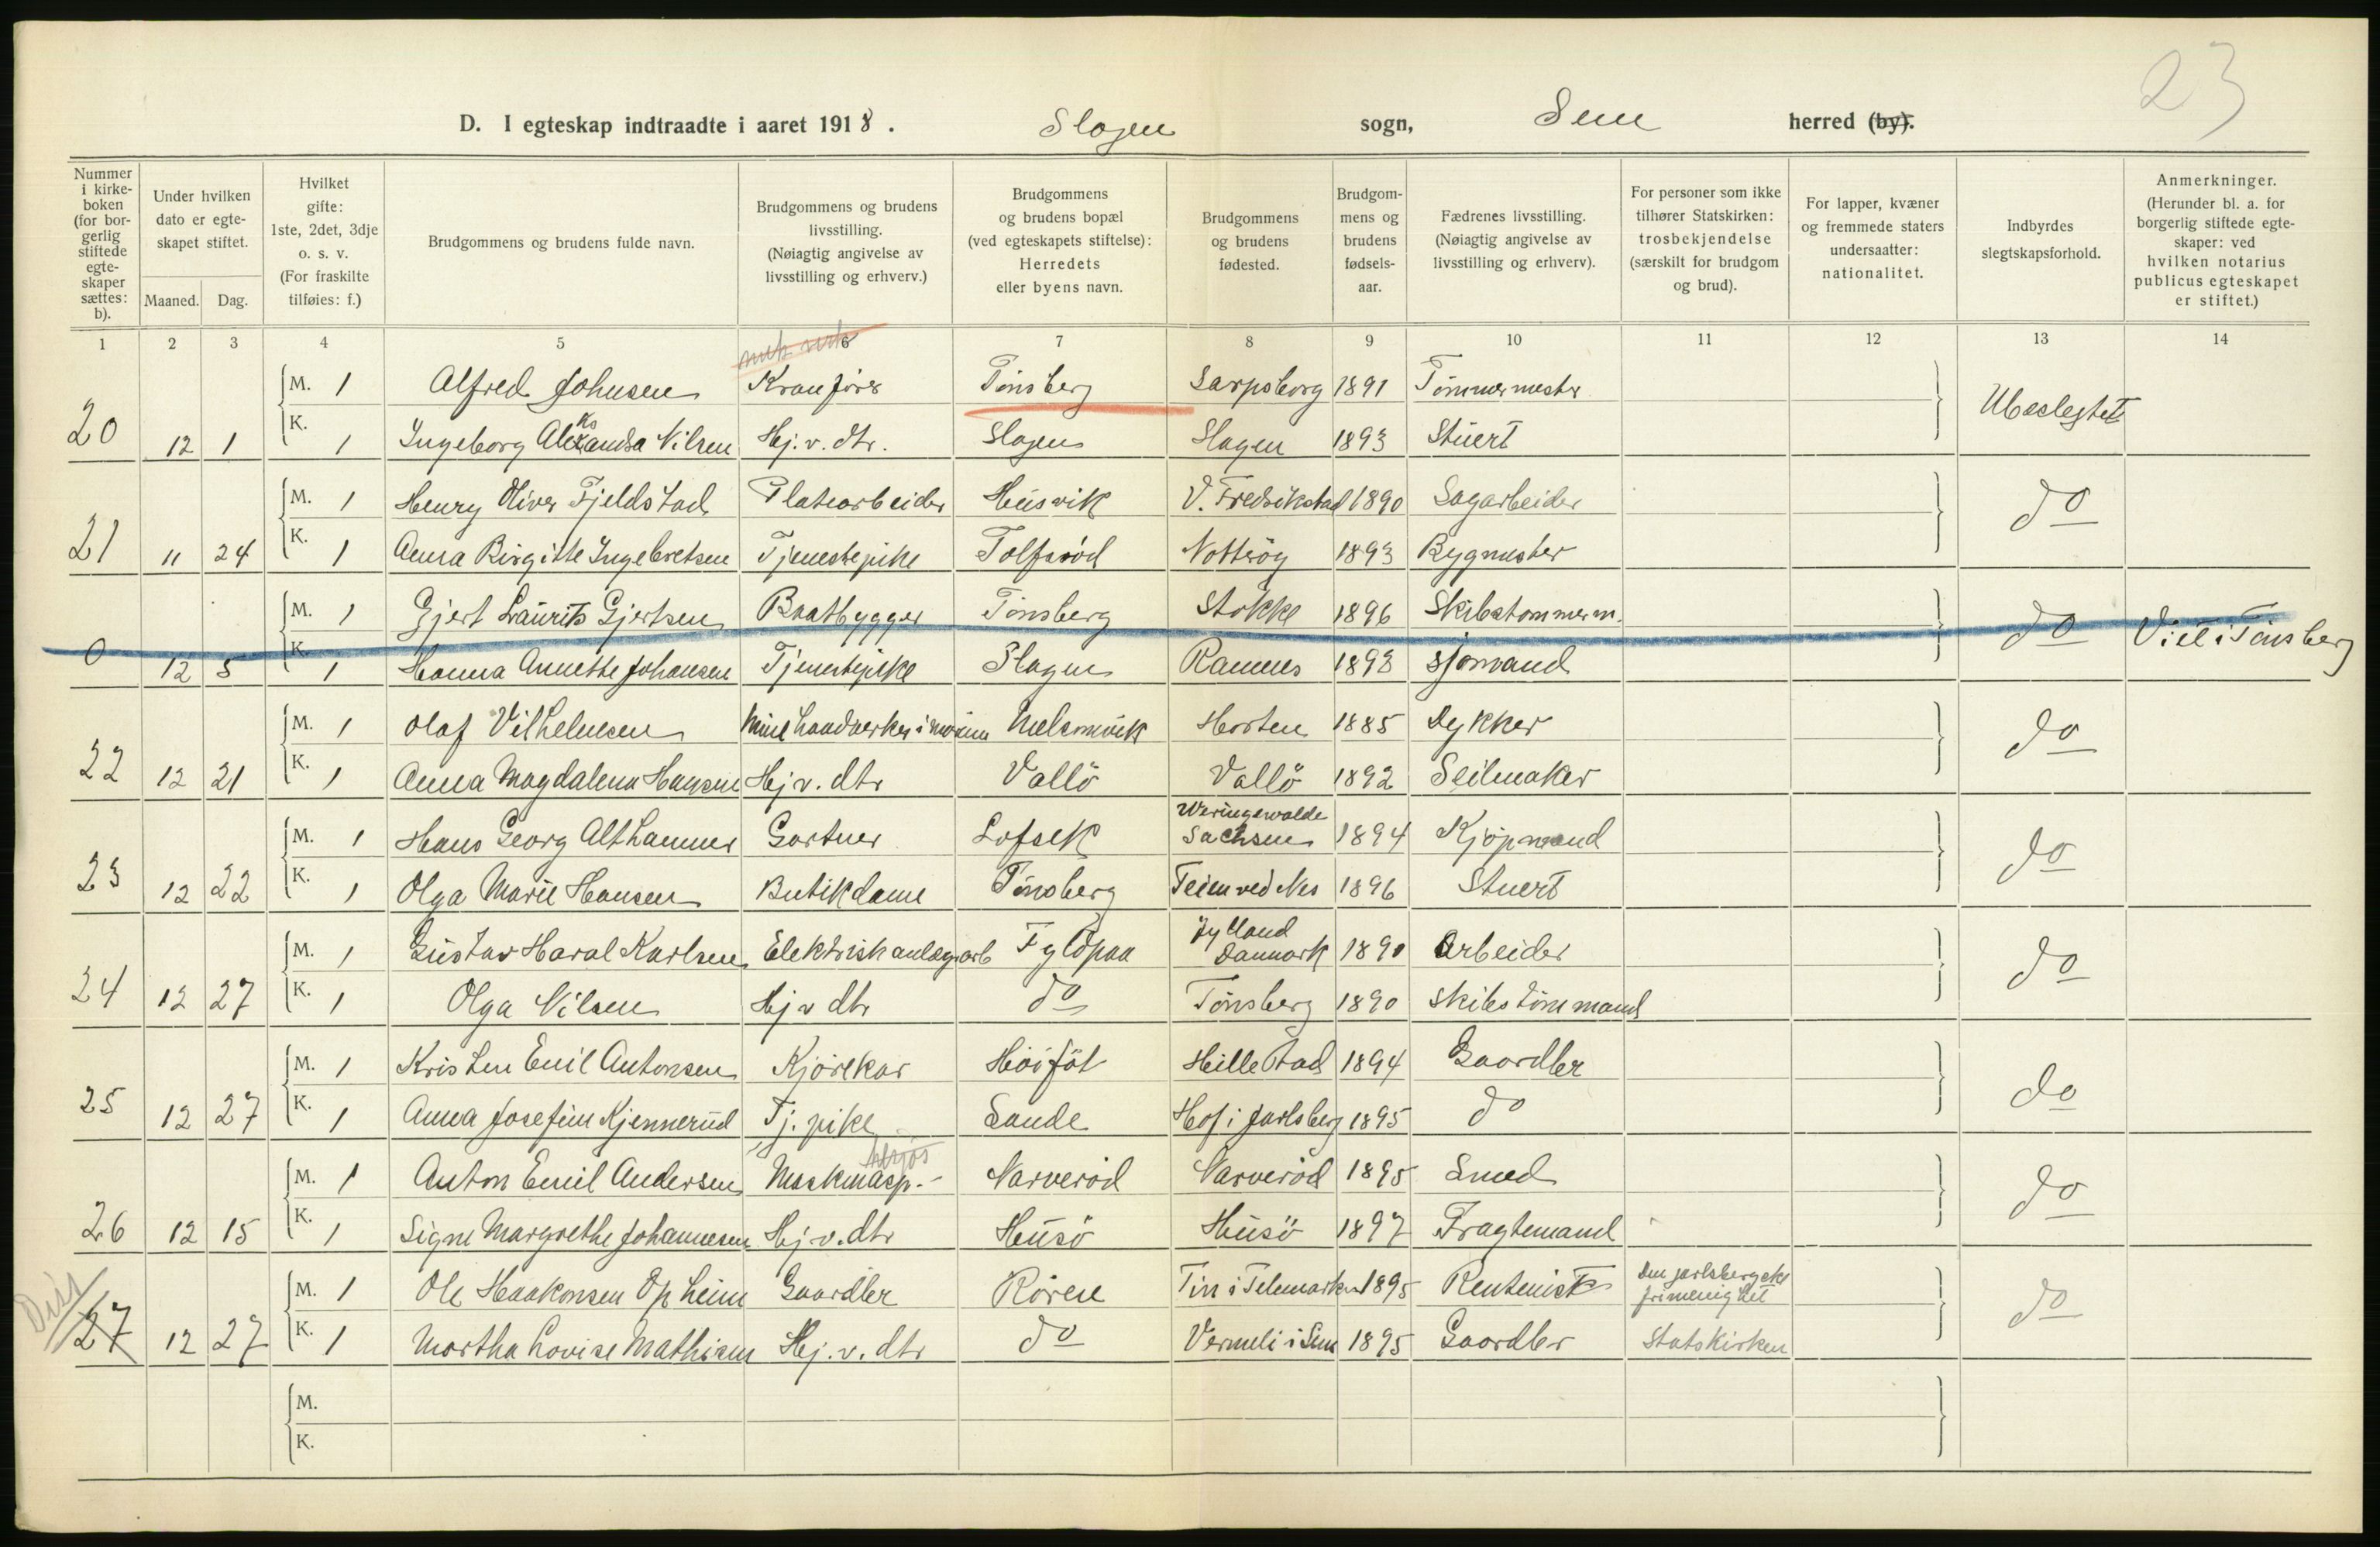 23
D. I egteskap indtraadte i aaret 1918. Slagen sogn, Sem herred (by).
Nummer i kirkeboken (for borgerlig stiftede egteskaper sættes: b).
Under hvilken dato er egteskapet stiftet.
Maaned. Dag.
Hvilket gifte: 1ste, 2det, 3dje o. s. v. (For fraskilte tilføies: f.)
Brudgommens og brudens fulde navn.
Brudgommens og brudens livsstilling. (Nøiagtig angivelse av livsstilling og erhverv.)
Brudgommens og brudens bopæl (ved egteskapets stiftelse): Herredets eller byens navn.
Brudgommens og brudens fødested.
Brudgommens og brudens fødselsaar.
Fædrenes livsstilling. (Nøiagtig angivelse av livsstilling og erhverv).
For personer som ikke tilhører Statskirken: trosbekjendelse (særskilt for brudgom og brud).
For lapper, kvæner og fremmede staters undersaatter: nationalitet.
Indbyrdes slegtskapsforhold.
Anmerkninger. (Herunder bl. a. for borgerlig stiftede egteskaper: ved hvilken notarius publicus egteskapet er stiftet.)
1 2 3 4 5 6 7 8 9 10 11 12 13 14
M. 1 Alfred Johnsen Kranfører Tönsberg Sarpsborg 1891 Tömmermestr Ubeslegtet
20 12 1 K. 1 Ingeborg Aleksandra Nilsen Hj. v. dtr. Slagen Slagen 1893 Stuert
M. 1 Henry Oliver Fjeldstad Platearbeider Husvik V. Fredrikstad 1890 Sagarbeider do
21 11 24 K. 1 Anna Birgitte Ingebretsen Tjenestepike Tolfsröd Nötteröy 1893 Bygmester
M. 1 Gjert Laurits Gjertsen Baatbygger Tönsberg Stokke 1896 Skibstömmerm. do Viet i Tönsberg
0 12 5 K. 1 Hanna Annette Johansen Tjenestepike Slagen Ramnes 1893 Sjömand
M. 1 Olaf Vilhelmsen Mine haandverker i marinen Melsomvik Horten 1885 Dykker do
22 12 21 K. 1 Anna Magdalena Hansen Hj v. dtr Vallö Vallö 1892 Seilmaker
M. 1 Hans Georg Althammer Gartner Lofsek Weringswalde Sachsen 1894 Kjöpmand do
23 12 22 K. 1 Olga Marie Hansen Butikdame Tönsberg Teien ved Nes 1896 Stuert
M. 1 Gustav Haral Karlsen Elektrisk anlægsarb Fylpaa Jylland Danmark 1890 Arbeider do
24 12 27 K. 1 Olga Nilsen Hj v dtr do Tönsberg 1890 Skibstömmand
M. 1 Kristen Emil Antonsen Kjörekar Höifot Hillestad 1894 Gaardbr do
25 12 27 K. 1 Anna Josefine Kjennerud Tj. pike Sande Hof i Jarlsberg 1895 do
M. 1 Anton Emil Andersen Maskinasp. Narveröd Narveröd 1895 Smed do
26 12 15 K. 1 Signe Margrethe Johannesen Hj. v. dtr Husö Husö 1897 Fragtemand
M. 1 Ole Haakonsen Opheim Gaardbr Rören Tin i Telemarken 1895 Rentenist Den jarlsbergske frimenighet do
Diss 27 12 27 K. 1 Martha Lovise Mathisen Hj. v. dtr do Vermeli i Sem 1895 Gaardbr Statskirken
M.
K.